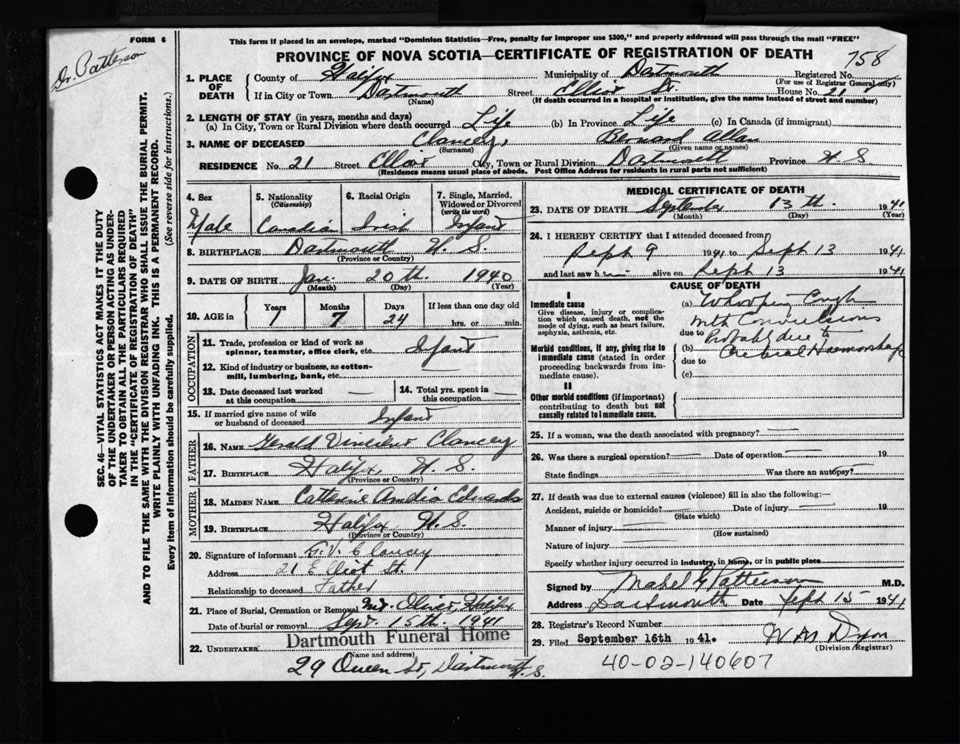 FORM 6
This form if placed in an envelope, marked "Dominion Statistics—Free, penalty for improper use $300," and properly addressed will pass through the mail "FREE"
Dr. Patterson
PROVINCE OF NOVA SCOTIA—CERTIFICATE OF REGISTRATION OF DEATH
758
1. PLACE OF DEATH County of Halifax Municipality of Dartmouth Registered No.
(For use of Registrar General only)
If in City or Town Dartmouth Street Elliot St. House No. 21
(Name) (If death occurred in a hospital or institution, give the name instead of street and number)
2. LENGTH OF STAY (in years, months and days)
(a) In City, Town or Rural Division where death occurred Life (b) In Province Life (c) In Canada (if immigrant)
3. NAME OF DECEASED Clancey, Bernard Allan
(Surname) (Given name or names)
RESIDENCE No. 21 Street Elliot City, Town or Rural Division Dartmouth Province N. S.
(Residence means usual place of abode. Post Office Address for residents in rural parts not sufficient)
4. Sex 5. Nationality (Citizenship) 6. Racial Origin 7. Single, Married, Widowed or Divorced (write the word)
Male Canadian Irish Infant
8. BIRTHPLACE Dartmouth N. S.
(Province or Country)
9. DATE OF BIRTH Jan. 20th. 1940
(Month) (Day) (Year)
10. AGE in Years Months Days If less than one day old
1 7 24 hrs. or min.
OCCUPATION
11. Trade, profession or kind of work as spinner, teamster, office clerk, etc. Infant
12. Kind of industry or business, as cotton-mill, lumbering, bank, etc.
13. Date deceased last worked at this occupation
14. Total yrs. spent in this occupation
15. If married give name of wife or husband of deceased Infant
FATHER
16. NAME Gerald Vincent Clancey
17. BIRTHPLACE Halifax, N. S.
(Province or Country)
MOTHER
18. MAIDEN NAME Catherine Edwards
19. BIRTHPLACE Halifax N. S.
(Province or Country)
20. Signature of informant G. V. Clancey
Address 21 Elliot St.
Relationship to deceased Father
21. Place of Burial, Cremation or Removal Mt. Olivet, Halifax
Date of burial or removal Sept. 15th. 1941
22. UNDERTAKER Dartmouth Funeral Home
(Name and address)
29 Queen St, Dartmouth N. S.
MEDICAL CERTIFICATE OF DEATH
23. DATE OF DEATH September 13th. 1941
(Month) (Day) (Year)
24. I HEREBY CERTIFY that I attended deceased from
Sept 9 1941 to Sept 13 1941
and last saw him alive on Sept 13 1941
CAUSE OF DEATH
I
Immediate cause
Give disease, injury or complication which caused death, not the mode of dying, such as heart failure, asphyxia, asthenia, etc.
(a) Whooping Cough
with Convulsions
due to probably due to
Morbid conditions, if any, giving rise to immediate cause (stated in order proceeding backwards from immediate cause).
(b) Cerebral Haemorrhage
due to
(c)
II
Other morbid conditions (if important) contributing to death but not causally related to immediate cause.
25. If a woman, was the death associated with pregnancy?
26. Was there a surgical operation? Date of operation 19
State findings Was there an autopsy?
27. If death was due to external causes (violence) fill in also the following:—
Accident, suicide or homicide? Date of injury 19
(State which)
Manner of injury
(How sustained)
Nature of injury
Specify whether injury occurred in industry, in home, or in public place
Signed by Mabel G Patterson M.D.
Address Dartmouth Date Sept 15 1941
28. Registrar's Record Number
29. Filed September 16th 1941.
(Division Registrar)
40-02-140607
SEC. 46—VITAL STATISTICS ACT MAKES IT THE DUTY
OF THE UNDERTAKER OR PERSON ACTING AS UNDER-
TAKER TO OBTAIN ALL THE PARTICULARS REQUIRED
IN THE "CERTIFICATE OF REGISTRATION OF DEATH"
AND TO FILE THE SAME WITH THE DIVISION REGISTRAR WHO SHALL ISSUE THE BURIAL PERMIT.
WRITE PLAINLY WITH UNFADING INK. THIS IS A PERMANENT RECORD.
Every item of information should be carefully supplied. (See reverse side for instructions.)